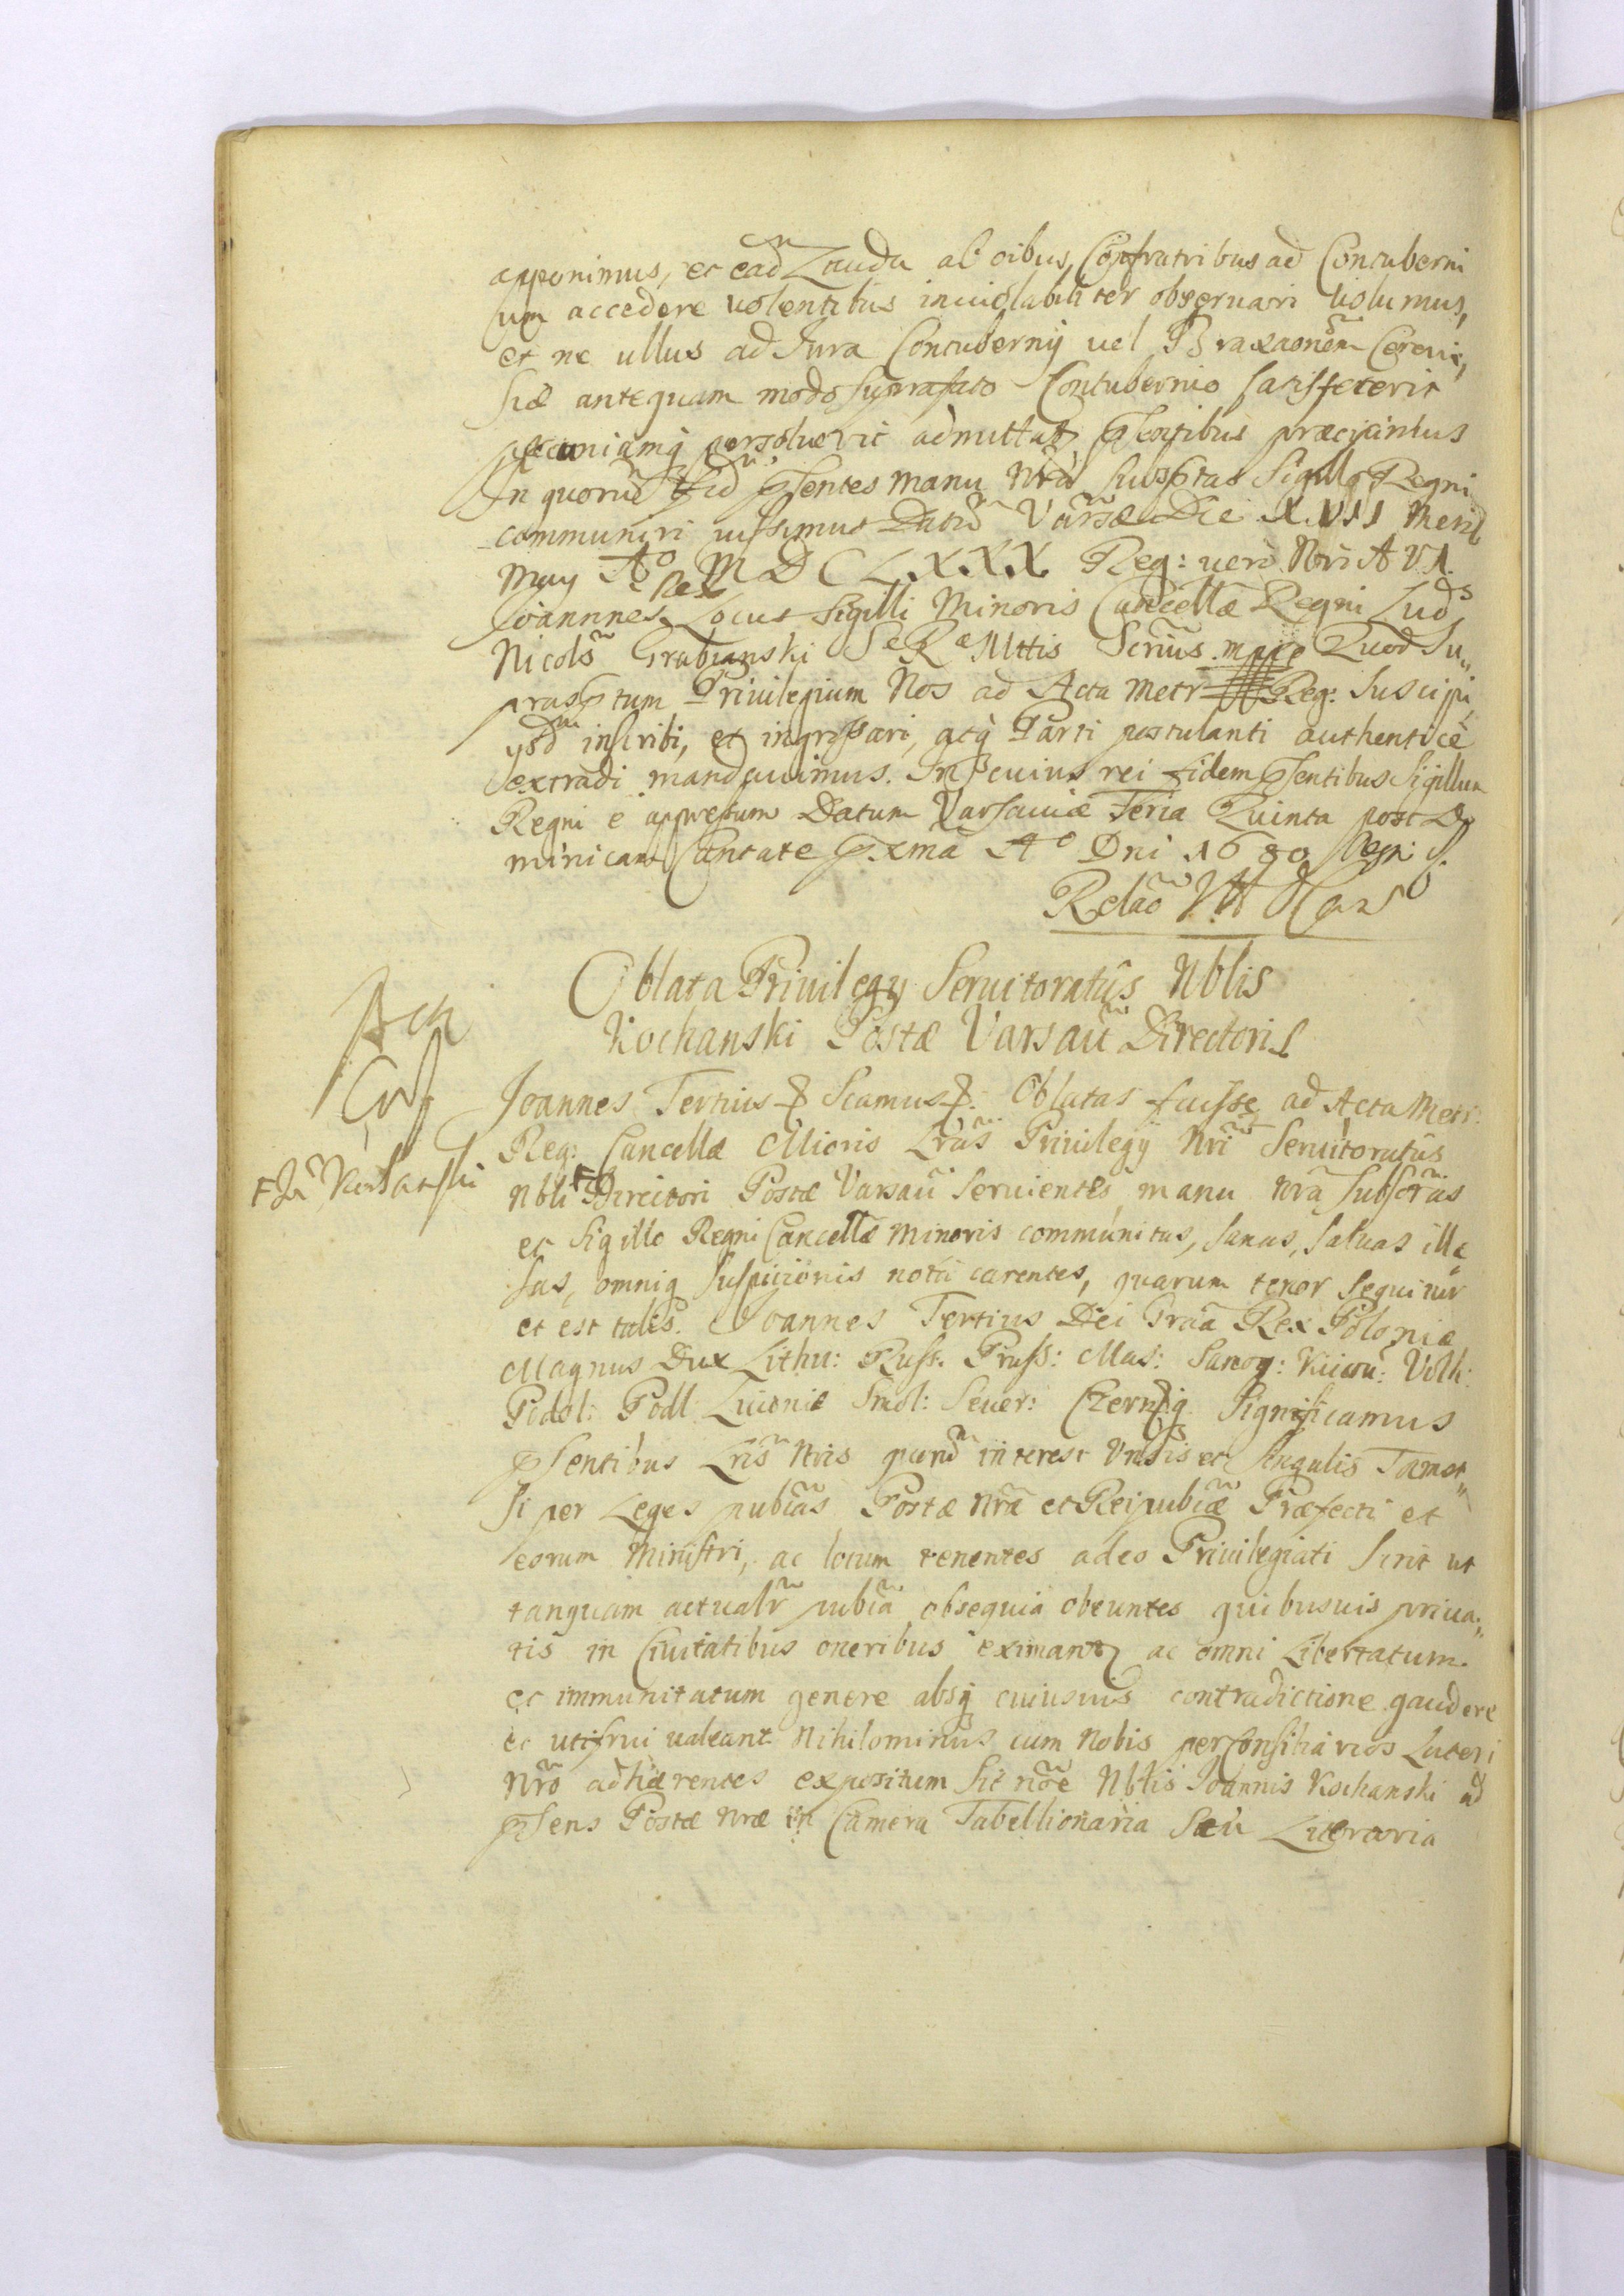 apponimus, et ead Lauda ab oibus Confratribus ad Contuberni
um accedere volentibus inuiolabiliter obseruari volumus,
et ne ullus ad Jura Contubernij uel Braxaonem Cereui,
siæ antequam modo suprafato Contubernio satisfecerit
pecuniamq persoluerit admittat pntibus præcipimus
In quorũ fid psentes manu Nrã subsptas Sigillo Regni
communiri iussimus Datũ Varsæ Die XVII Mens
May Aº MDCLXXX Reg: uero Nri A VI.
Joannnes Rex Locus Sigilli Minoris Cancellæ Regni Lud
Nicols Grabianski S R Mttis Scrius. mppe Quod Su„
prasptum Priuilegium Nos ad Acta Metr Reg: Suscipi,
ysd inscribi, et ingrossari, atq Parti postulanti authentice
extradi mandauimus. In cuius rei fidem psentibus Sigillum
Regni e appressum Datum Varsauiæ Feria Quinta post Do
minicam Cantate pxma Aº Dni 1680 Regn:
Relaõ
Oblata Priuilegy Seruitoratûs Nblis
Kochanski Postæ Varsau Directoris
Joannes Tertius Scamus Oblatas fuisse ad Acta Metr:
Reg: Cancellæ Mioris Lrãs Priuilegÿ Nri Seruitoratûs
Nbli + Directori Postæ Varsau seruientes, manu nrã subscras
+ Jn Kochanski
et Sigillo Regni Cancellæ Minoris communitas, sanas, saluas illæ
sas, omniq suspicionis nota carentes, quarum tenor sequitur
et est talis. Joannes Tertius Dei Grãa Rex Poloniæ
Magnus Dux Lithu: Russ. Pruss: Mas: Samog: Kiiou: Volh:
Podol: Podl: Liuoniæ Smol: Seuer: Czernq Significamus
psentibus Lris Nris quorũ interest Vnsis et Singulis Tamet„
si per Leges publicas Postæ nræ et Reipubcæ Præfecti et
eorum Ministri, ac locum tenentes adeo Priuilegiati sint ut
tanquam actualr pubca obsequia obeuntes quibusuis priua„
tis in Ciuitatibus oneribus eximant ac omni Libertatum.
et immunitatum genere absq cuiusuis contradictione gaudere
et utifrui ualeant. Nihilominus cum Nobis per Consiliarios Lateri
Nrõ adhærentes expositum sit nõie Nblis Joannis Kochanski ad
psens Postæ nræ in Camera Tabellionaria seu Literaria